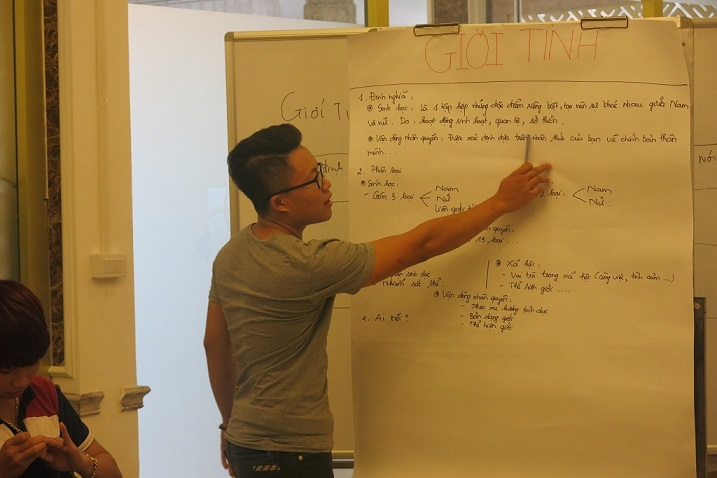 GIỚI TÍNH
Giới Tí
1. Định nghĩa:
⊛ Sinh học: Là 1 tập hợp những đặc điểm riêng biệt, tạo nên sự khác nhau giữa Nam
và nữ. Do: hoạt động sinh hoạt, quan hệ, sở thích.
⊛ Vận động nhân quyền: Được xác định dựa trên nhận thức của bạn về chính bản thân
mình...
2. Phân loại
⊛ Sinh học:
- Gồm 3 loại
Nam
Nữ
Liên giới tí
2 loại:
Nam
Nữ
quyền:
13 loại...
sinh dục
Nhiễm sắc thể.
⊛ Xã hội:
- Vai trò trong xã hội (công việc, tình cảm...)
- Thể hiện giới....
⊛ Vận động nhân quyền:
- Theo xu hướng tính dục
- Bản dạng giới
- Thể hiện giới
4. Ai nói?
định
nói